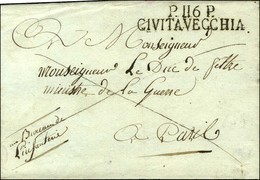 P.116.P.
CIVITAVECCHIA
A Monseigneur
monseigneur Le Duc de feltre
ministre de la Guerre
Bureau de
L'infanterie
A Paris